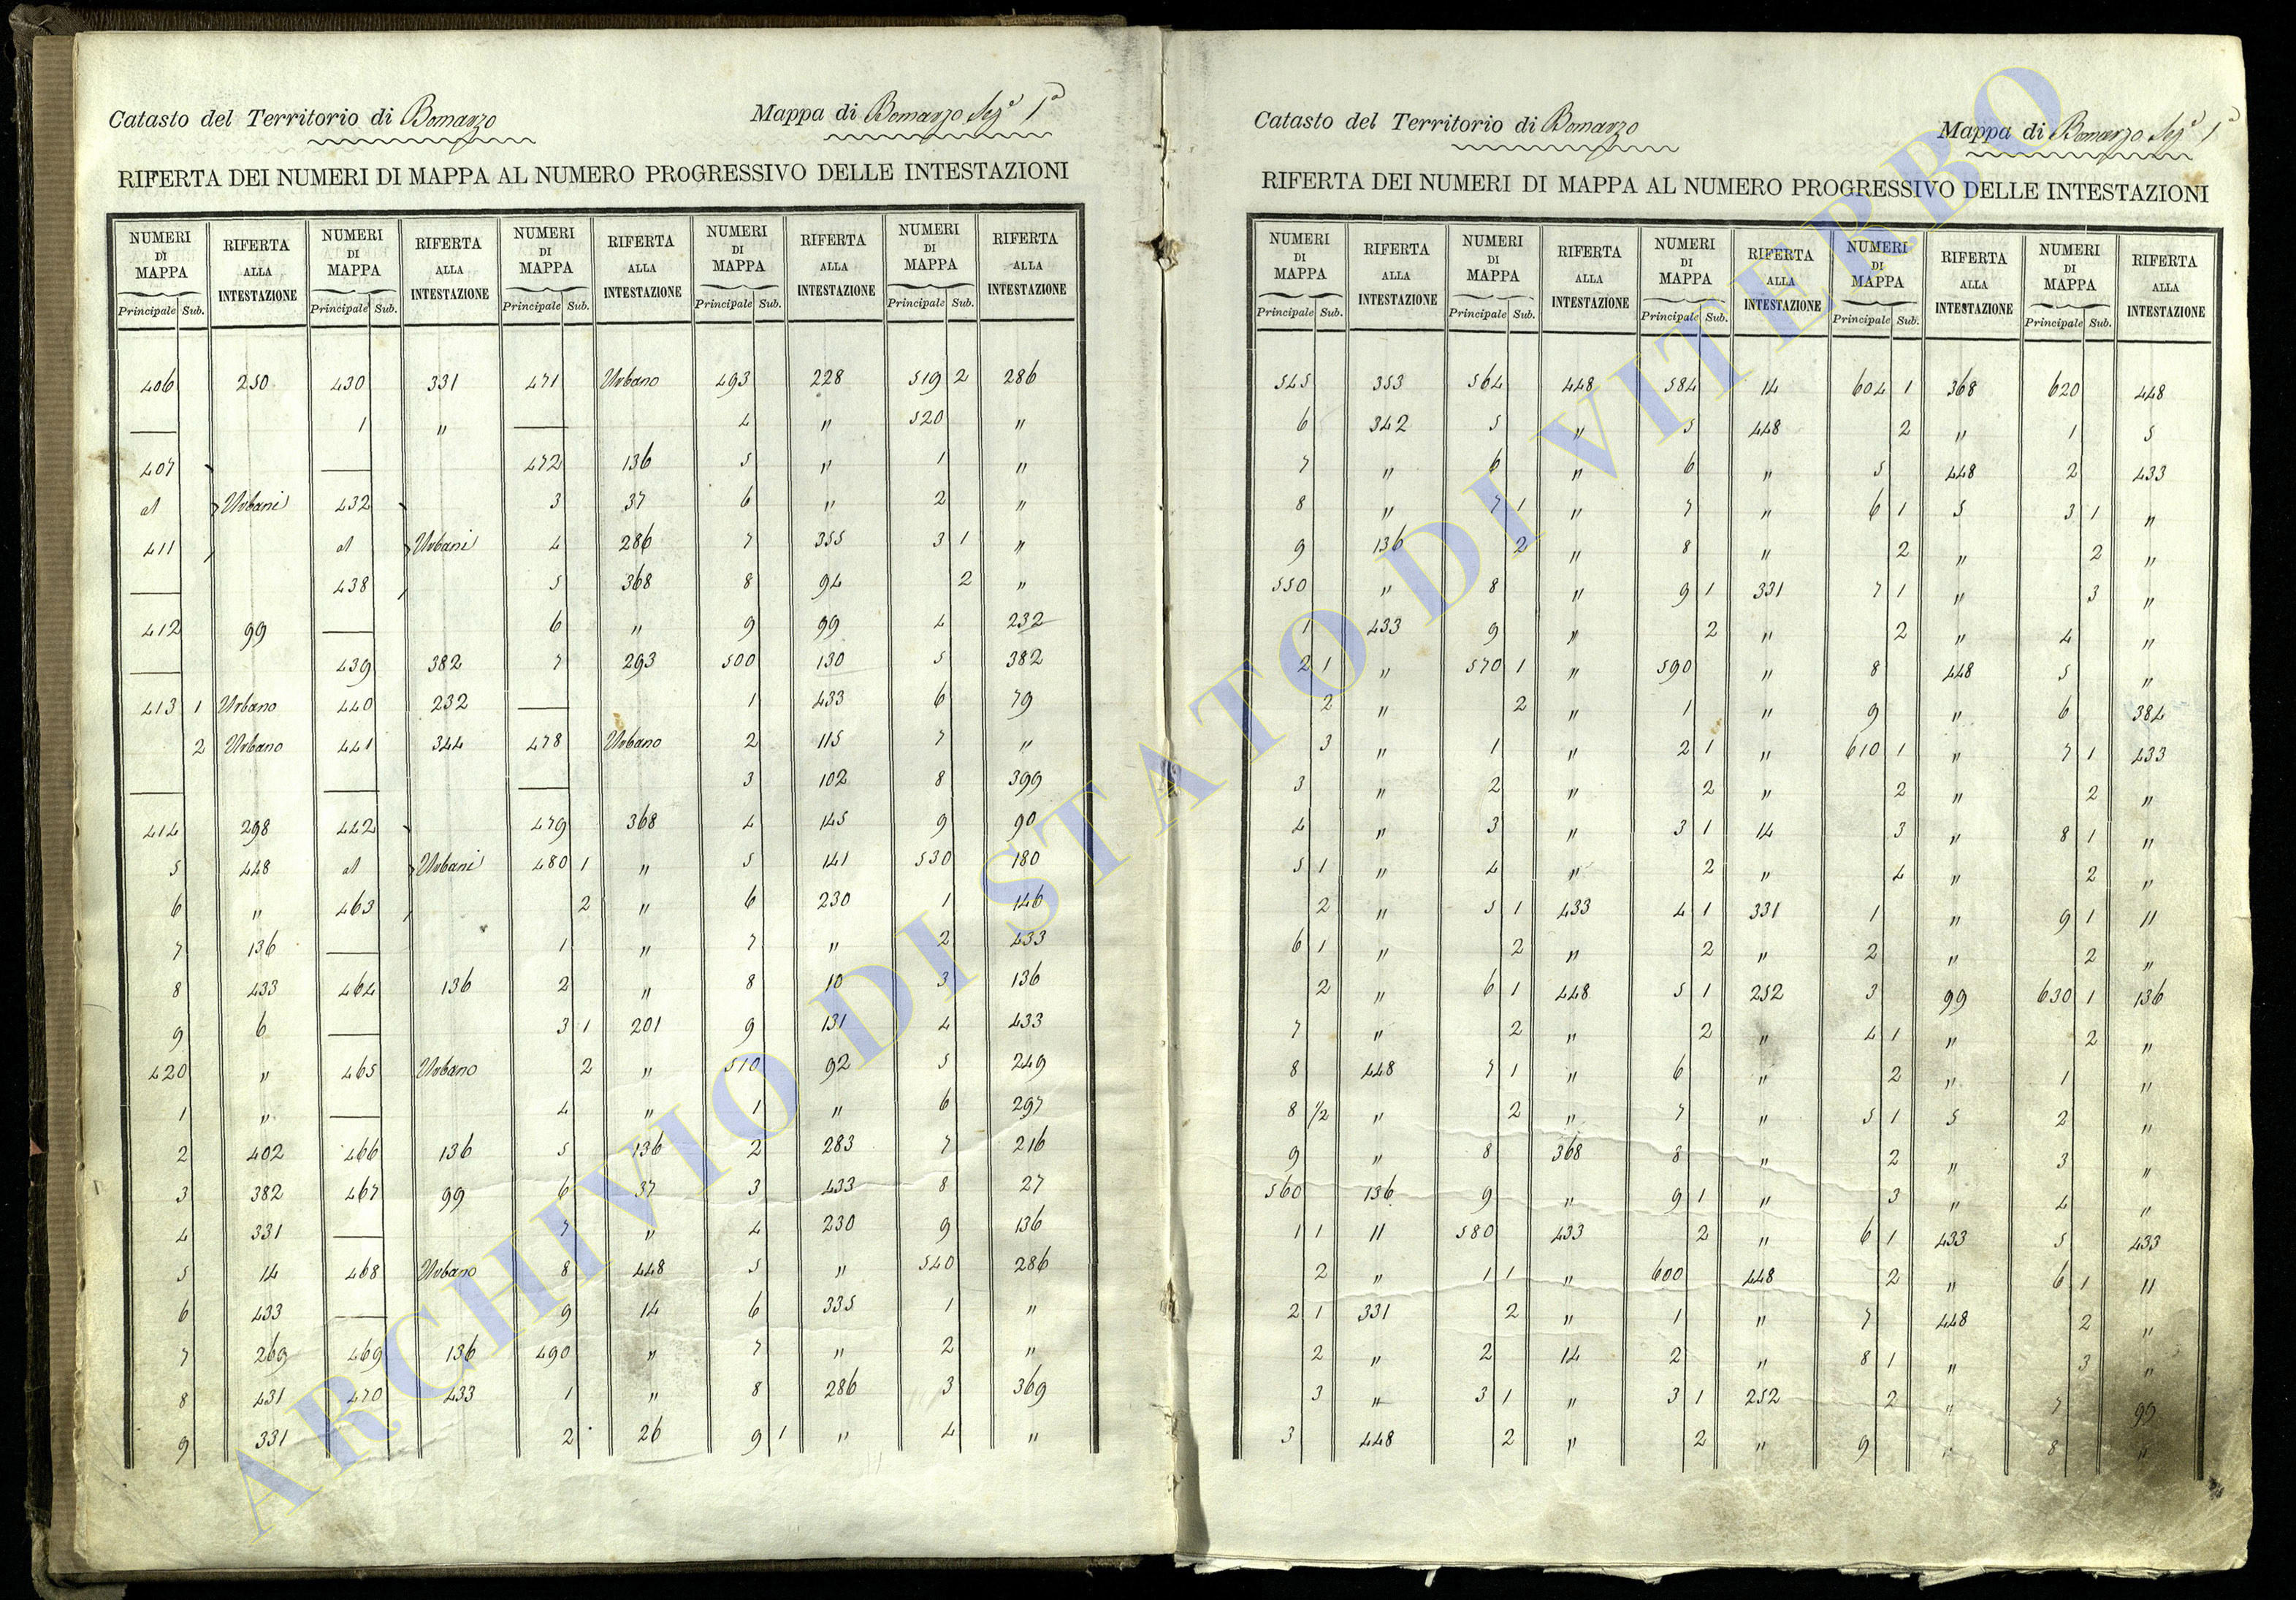 Catasto del Territorio di Bomarzo Mappa di Bomarzo Sezᵉ 1ᵃ
RIFERTA DEI NUMERI DI MAPPA AL NUMERO PROGRESSIVO DELLE INTESTAZIONI
NUMERI DI MAPPA RIFERTA ALLA INTESTAZIONE NUMERI DI MAPPA RIFERTA ALLA INTESTAZIONE NUMERI DI MAPPA RIFERTA ALLA INTESTAZIONE NUMERI DI MAPPA RIFERTA ALLA INTESTAZIONE NUMERI DI MAPPA RIFERTA ALLA INTESTAZIONE
Principale Sub. Principale Sub. Principale Sub. Principale Sub. Principale Sub.
406 250 430 331 471 Urbano 493 228 519 2 286
— 1 " — 4 " 520 "
407 — 472 136 5 " 1 "
al Urbani 432 3 37 6 " 2 "
411 al Urbani 4 286 7 355 3 1 "
— 438 5 368 8 94 2 "
412 99 — 6 " 9 99 4 232
— 439 382 7 293 500 130 5 382
413 1 Urbano 440 232 — 1 433 6 79
2 Urbano 441 344 478 Urbano 2 115 7 "
— — — 3 102 8 399
414 298 442 479 368 4 145 9 90
5 448 al Urbani 480 1 " 5 141 530 180
6 " 463 2 " 6 230 1 146
7 136 — 1 " 7 " 2 433
8 433 464 136 2 " 8 10 3 136
9 6 — 3 1 201 9 131 4 433
420 " 465 Urbano 2 " 510 92 5 249
1 " — 4 " 1 " 6 297
2 402 466 136 5 136 2 283 7 216
3 382 467 99 6 37 3 433 8 27
4 331 — 7 " 4 230 9 136
5 14 468 Urbano 8 448 5 " 540 286
6 433 — 9 14 6 335 1 "
7 269 469 136 490 " 7 " 2 "
8 431 470 433 1 " 8 286 3 369
9 331 2 26 9 1 " 4 "
Catasto del Territorio di Bomarzo Mappa di Bomarzo Sezᵉ 1ᵃ
RIFERTA DEI NUMERI DI MAPPA AL NUMERO PROGRESSIVO DELLE INTESTAZIONI
NUMERI DI MAPPA RIFERTA ALLA INTESTAZIONE NUMERI DI MAPPA RIFERTA ALLA INTESTAZIONE NUMERI DI MAPPA RIFERTA ALLA INTESTAZIONE NUMERI DI MAPPA RIFERTA ALLA INTESTAZIONE NUMERI DI MAPPA RIFERTA ALLA INTESTAZIONE
Principale Sub. Principale Sub. Principale Sub. Principale Sub. Principale Sub.
545 353 564 448 584 14 604 1 368 620 448
6 342 5 " 5 448 2 " 1 5
7 " 6 " 6 " 5 448 2 433
8 " 7 1 " 7 " 6 1 5 3 1 "
9 136 2 " 8 " 2 " 2 "
550 " 8 " 9 1 331 7 1 " 3 "
1 433 9 " 2 " 2 " 4 "
2 1 " 570 1 " 590 " 8 448 5 "
2 " 2 " 1 " 9 " 6 384
3 " 1 " 2 1 " 610 1 " 7 1 433
3 " 2 " 2 " 2 " 2 "
4 " 3 " 3 1 14 3 " 8 1 "
5 1 " 4 " 2 " 4 " 2 "
2 " 5 1 433 4 1 331 1 " 9 1 "
6 1 " 2 " 2 " 2 " 2 "
2 " 6 1 448 5 1 252 3 99 630 1 136
7 " 2 " 2 " 4 1 " 2 "
8 448 7 1 " 6 " 2 " 1 "
8 1/2 " 2 " 7 " 5 1 5 2 "
9 " 8 368 8 " 2 " 3 "
560 136 9 " 9 1 " 3 " 4 "
1 1 " 580 433 2 " 6 1 433 5 433
2 " 1 1 " 600 448 2 " 6 1 "
2 1 331 2 " 1 " 7 448 2 "
2 " 2 14 2 " 8 1 " 3 "
3 " 3 1 " 3 1 252 2 " 7 99
3 448 2 " 2 " 9 " 8 "
ARCHIVIO DI STATO DI VITERBO